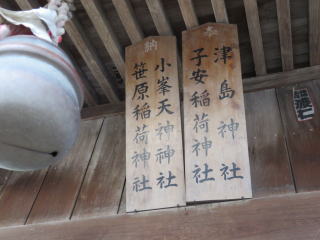 奉
津島神社
子安稲荷神社
納
小峯天神神社
笹原稲荷神社